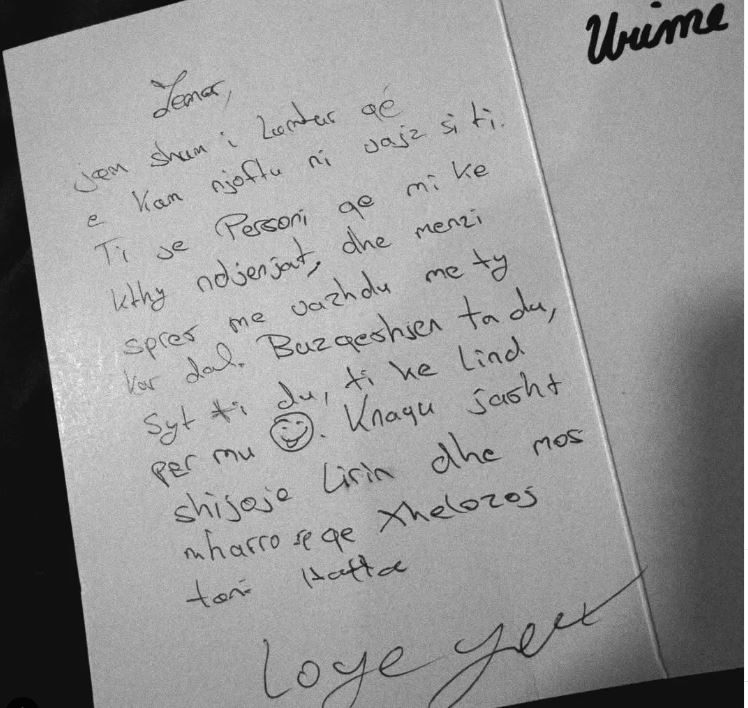 Urime
Lemar,
jam shum i Lumtur që
e kam njoftu ni vajz si ti.
Ti je Personi qe mi ke
kthy ndjenjat, dhe menzi
spres me vazhdu me ty
kar dal. Buzqeshjen ta du,
Syt ti du, ti ke Lind
per mu ☺. Knaqu jasht
shijoje Lirin dhe mos
mharro se qe xhelozoj
tani
Love you